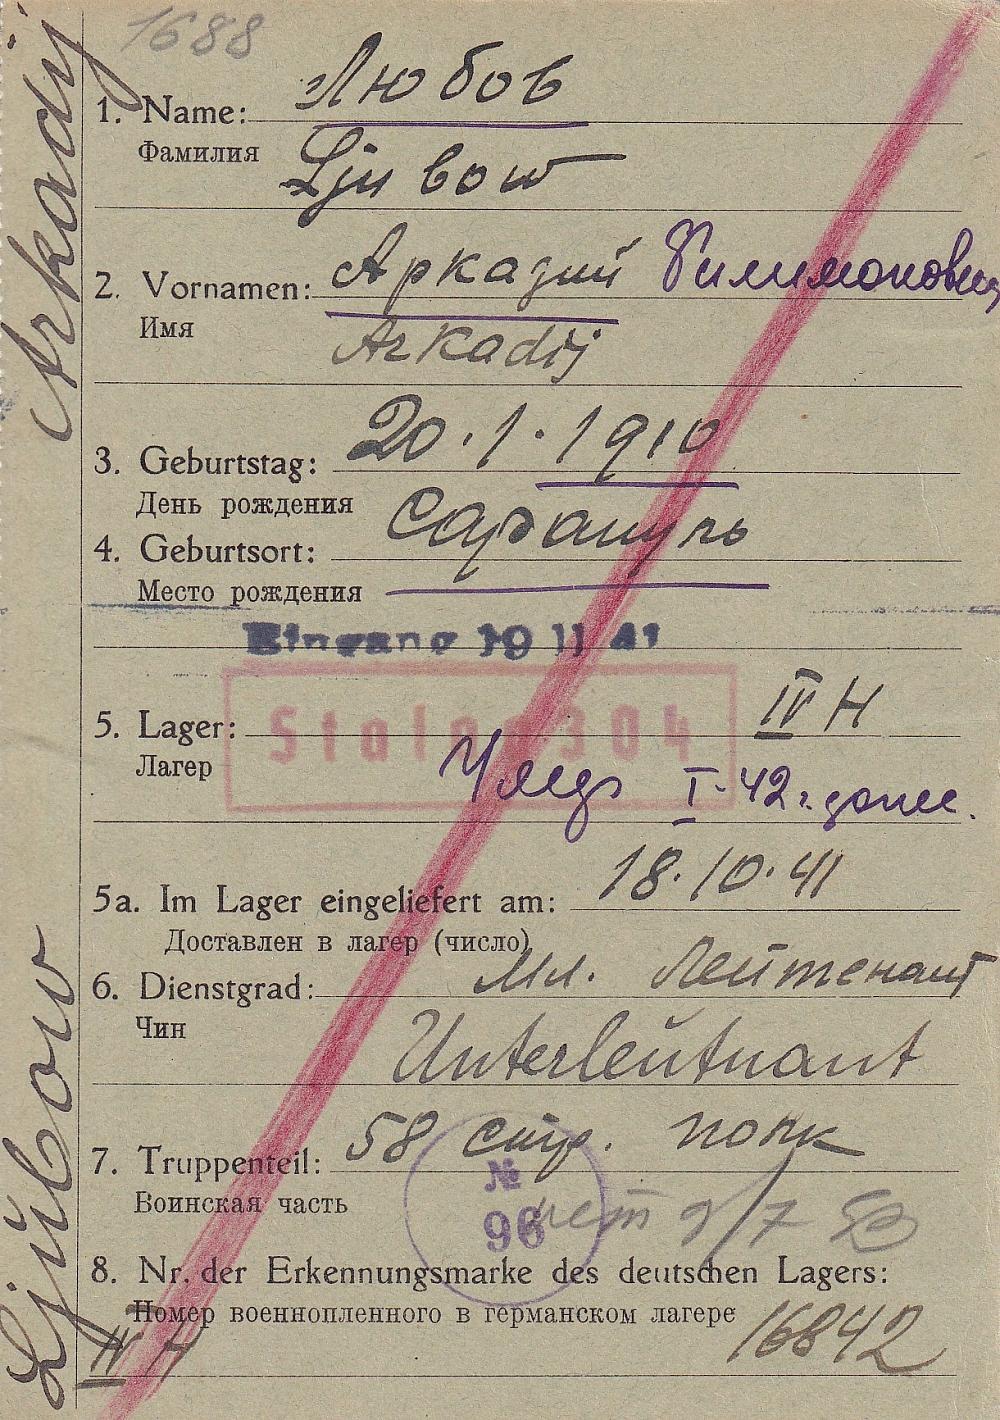 1688
1. Name: Любов
Фамилия
Ljubow
2. Vornamen: Аркадий Филимонович
Имя
Arkadij
3. Geburtstag: 20.1.1910
День рождения
4. Geburtsort: Сарапуль
Место рождения
Eingang 19 11 41
Stalag 304
5. Lager: IV H
Лагерь
I-42 г. донес.
5a. Im Lager eingeliefert am: 18.10.41
Доставлен в лагер (число)
6. Dienstgrad: Мл. Лейтенант
Чин
Unterleutnant
7. Truppenteil: 58 стр. полк
Воинская часть
№
96
нет д/7
8. Nr. der Erkennungsmarke des deutschen Lagers:
Номер военнопленного в германском лагере
IV H 16842
Ljubow Arkadij